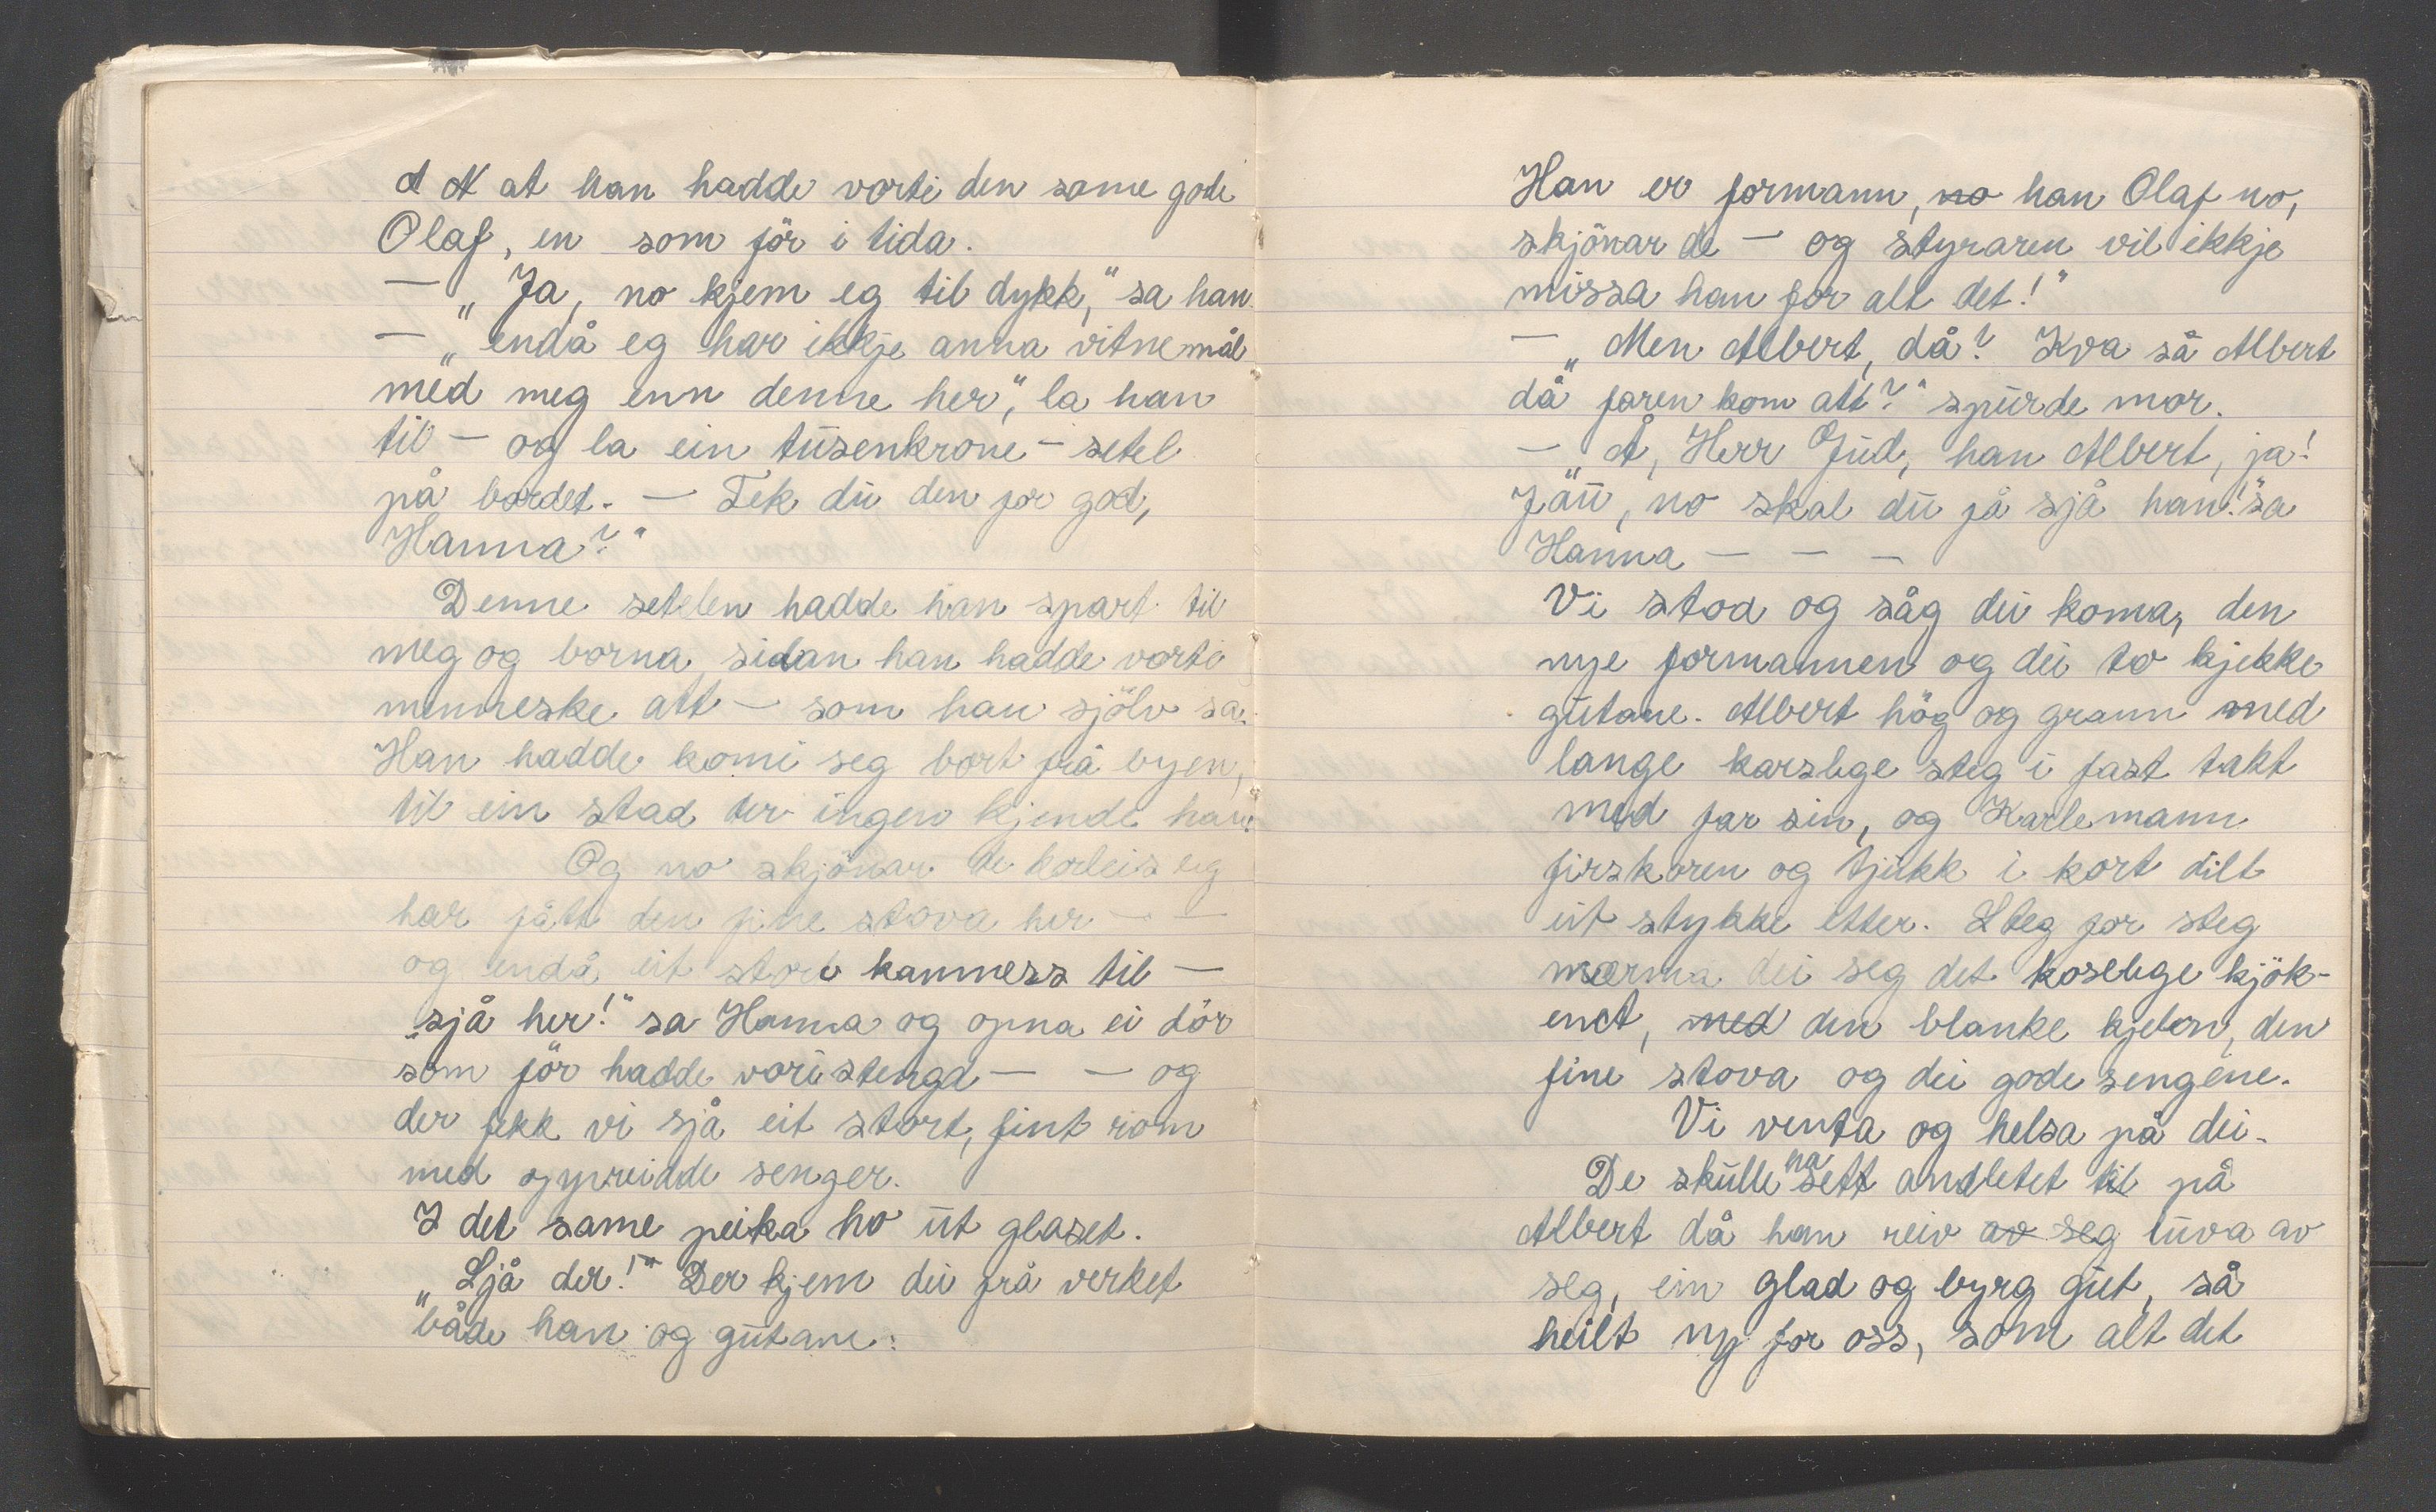 at han hadde vorti den same gode
Olaf, en som för i tida.
— „Ja, no kjem eg til dykk," sa han.
— „endå eg har ikkje anna vitnemål
med meg enn denne her", la han
til — og la ein tusenkrone-setel
på bordet. — Tek du den for god,
Hanna?"
Denne setelen hadde han spart til
meg og borna, sidan han hadde vorti
menneske att — som han sjölv sa.
Han hadde komi seg bort frå byen,
til ein stad der ingen kjende han.
Og no skjönar de korleis eg
har fått den fine stova her — —
og endå eit stort kammess til —
„sjå her!" sa Hanna og opna ei dör
som för hadde vori stengd — — og
der fekk vi sjå eit stort, fint rom
med oppreidde senger.
I det same peika ho ut glaset.
„Sjå der!" Der kjem dei frå verket
både han og gutane.
Han er formann, no han Olaf no,
skjönar de — og styraren vil ikkje
missa han for alt det!"
— „Men Albert, då? Kva sa Albert
då faren kom att?" spurde mor.
— „Å, Herr Gud, han Albert, ja!
Jau, no skal du få sjå han!" sa
Hanna — — —
Vi stod og såg dei koma, den
nye formannen og dei to kjekke
gutane. Albert hög og grann med
lange karslege steg i fast takt
med far sin, og Karlemann
firskoren og tjukk i kort dilt
eit stykke etter. Steg for steg
nærma dei seg det koselege kjök-
enet, med den blanke kjelen, den
fine stova og dei gode sengene.
Vi venta og helsa på dei.
De skulle ha sett andletet til på
Albert då han reiv av seg luva av
seg, ein glad og byrg gut, så
heilt ny for oss, som alt det